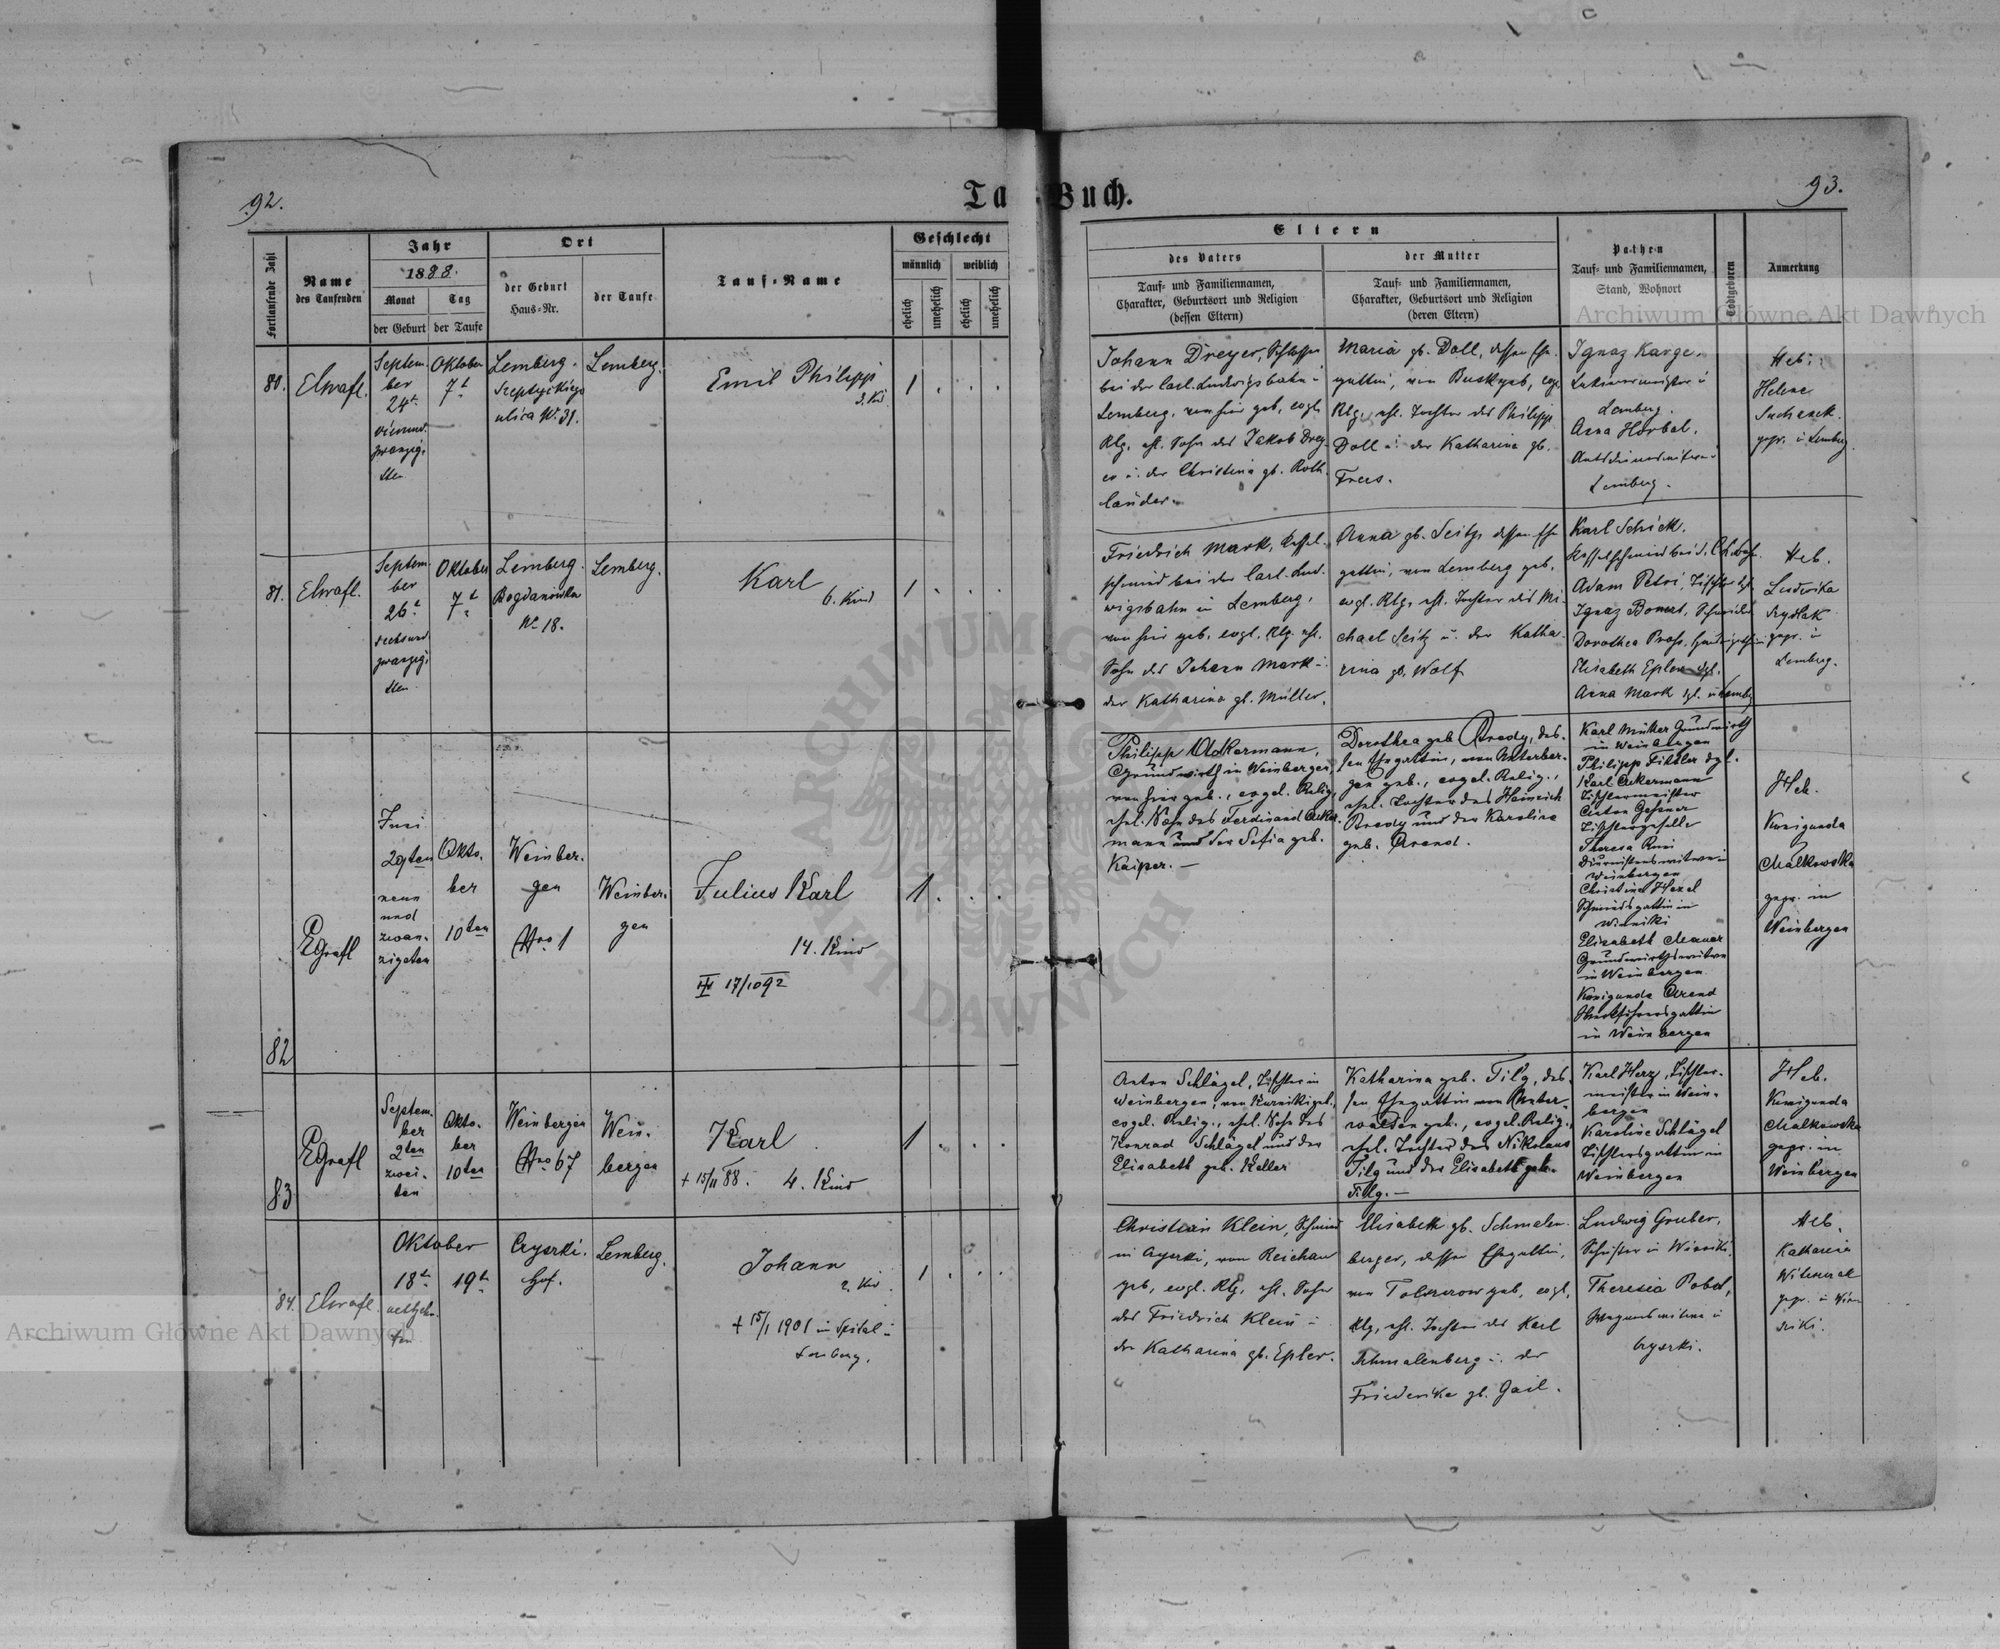 92.
Ta Buch.
93.
Fortlaufende Zahl
Name
des Taufenden
Jahr
1888.
Monat
Tag
der Geburt
der Taufe
Ort
der Geburt
Haus-Nr.
der Taufe
Tauf-Name
Geschlecht
männlich
weiblich
ehelich
unehelich
ehelich
unehelich
Eltern
des Vaters
Tauf- und Familiennamen,
Charakter, Geburtsort und Religion
(dessen Eltern)
der Mutter
Tauf- und Familiennamen,
Charakter, Geburtsort und Religion
(deren Eltern)
Pathen
Tauf- und Familiennamen,
Stand, Wohnort
Todtgeboren
Anmerkung
Archiwum Główne Akt Dawnych
80.
Septem
ber
24t
vierund
zwanzig
sten
Oktober
7t
Lemberg.
ulica Nr. 31.
Lemberg.
Emil Philipp
3. Kd
1
Johann Dreyer, Schlosser
bei der Carl-Ludwigsbahn i
Lemberg, von hier geb, evgl
Rlg, ehl. Sohn des Jakob Drey
er u. der Christina gb. Roth
länder.
Maria gb. Doll, dessen Ehe
gattin, von Busk geb, evg
Rlg, ehl. Tochter des Philipp
Doll u. der Katharina gb.
Frees.
Ignaz Karge.
Lemberg.
Anna Horbal.
Lemberg.
Heb:
Helene
Suchanek
gepr. i Lemberg
81.
Septem
ber
26t
sechsund
zwanzig
sten
Oktober
7t
Lemberg.
Bogdanówka
Nr 18.
Lemberg.
Karl
6. Kind
1
Friedrich Mark, Kessel
schmied bei der Carl-Lud
wigsbahn in Lemberg,
von hier geb, evgl. Rlg. ehl.
Sohn des Johann Mark u.
der Katharina gb. Müller.
Anna gb. Seitz dessen Ehe
gattin, von Lemberg geb,
evgl. Rlg, ehl. Tochter des Mi
chael Seitz u. der Katha
rina gb. Wolf
Karl Schick.
Kesselschmied bei d. C.L. Bahn.
Adam Petri, Tischler
Ignaz Bonert, Schmied
Dorothea Pross,
Elisabeth Epler dgl.
Anna Mark i Lemberg
Heb.
Ludwika
Szydlak
gepr. i
Lemberg.
82
Juni
29ten
neun
und
zwan-
zigsten
Okto-
ber
10ten
Weinber-
gen
Nro 1
Weinber-
gen
Julius Karl
14. Kind
17/10 92
1
Philipp Ackermann,
Grundwirth in Weinbergen,
von hier geb., evgel. Relig.,
ehel. Sohn des Ferdinand Acker-
mann und der Sofia geb.
Kaiper. —
Dorothea geb. Bredy, des-
sen Ehegattin, von Unterber-
gen geb., evgel. Relig.,
ehel. Tochter des Heinrich
Bredy und der Karoline
geb. Arend.
Karl Müller Grundwirth
in Weinbergen
Philipp Filsler dgl.
Karl Ackermann
Tischlermeister
Anton Gessner
Tischlergeselle
Theresa Rusi
Weinbergen
Christina Hexel
Schmiedsgattin in
Winniki
Elisabeth Maner
Grundwirthswitwe
in Weinbergen
Kunigunda Arend
Werkführersgattin
in Weinbergen
Heb.
Kunigunda
Malkowska
gepr. in
Weinbergen
83
Septem-
ber
2ten
zwei-
ten
Okto-
ber
10ten
Weinbergen
Nro 67
Wein-
bergen
Karl
+ 15/II 88. 4. Kind
1
Anton Schlägel, Tischler in
Weinbergen, von Kurniki geb.,
evgel. Relig., ehel. Sohn des
Konrad Schlägel und der
Elisabeth geb. Keller
Katharina geb. Tilg, des-
sen Ehegattin von Unter-
walden geb., evgel. Relig.,
ehel. Tochter des Nikolaus
Tilg und der Elisabeth geb.
Tilg. —
Karl Herz, Tischler-
meister in Wein-
bergen
Karoline Schlägel
Tischlersgattin in
Weinbergen
Heb.
Kunigunda
Malkowska
gepr. in
Weinbergen
84.
Oktober
18t
achtzehn
ten
19t
Czyszki.
Hof.
Lemberg.
Johann
2. Kd
+ 15/1 1901 im Spital i
Lemberg.
1
Christian Klein, Schmied
in Czyszki, von Reichau
geb, evgl. Rlg, ehl. Sohn
des Friedrich Klein u.
der Katharina gb. Epler.
Elisabeth gb. Schmalen
berger, dessen Ehegattin,
von Tolszczow geb, evgl,
Rlg, ehl. Tochter des Karl
Schmalenberg u. der
Friederike gb. Gail.
Ludwig Gruber,
Schuster in Winniki.
Theresia Pobel,
Wagnerswitwe i
Czyszki.
Heb.
Katharina
gepr. i Win
niki.
Archiwum Główne Akt Dawnych
ARCHIWUM GŁÓWNE AKT DAWNYCH